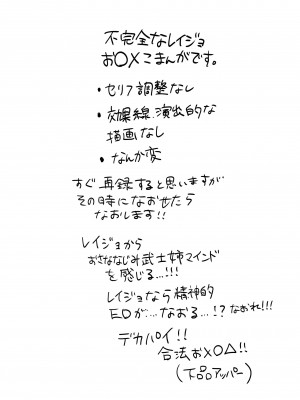 不完全なレイジョ
お○×こまんがです。
・セリフ調整なし
・効果線、演出的な
描画なし
・なんか変
すぐ再録すると思いますが
その時になおせたら
なおします!!
レイジョから
おさななじみ武士姉マインド
を感じる…!!!
レイジョなら精神的
EDが…なおる…!?なおれ!!!
デカパイ!!
合法お×○△!!
(下品アッパー)